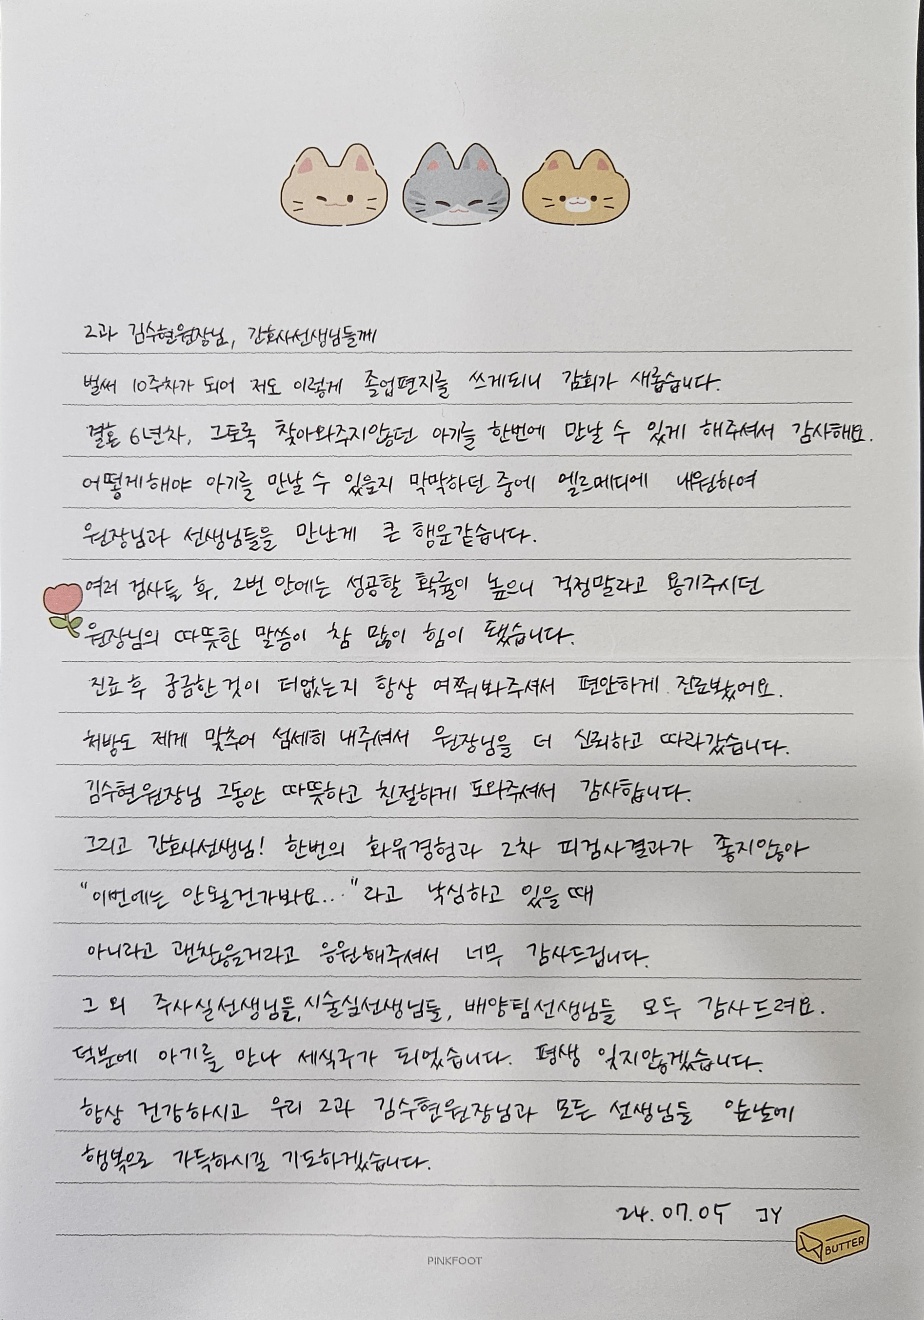 2과 김수현원장님, 간호사선생님들께
벌써 10주차가 되어 저도 이렇게 졸업편지를 쓰게되니 감회가 새롭습니다.
결혼 6년차, 그토록 찾아와주지않던 아기를 한번에 만날 수 있게 해주셔서 감사해요.
어떻게해야 아기를 만날 수 있을지 막막하던 중에 엘르메디에 내원하여
원장님과 선생님들을 만난게 큰 행운같습니다.
여러 검사들 후, 2번 안에는 성공할 확률이 높으니 걱정말라고 용기주시던
원장님의 따뜻한 말씀이 참 많이 힘이 됐습니다.
진료 후 궁금한것이 더없는지 항상 여쭤봐주셔서 편안하게 진료봤어요.
처방도 제게 맞추어 섬세히 내주셔서 원장님을 더 신뢰하고 따라갔습니다.
김수현원장님 그동안 따뜻하고 친절하게 도와주셔서 감사합니다.
그리고 간호사선생님! 한번의 화유경험과 2차 피검사결과가 좋지않아
"이번에는 안될건가봐요..." 라고 낙심하고 있을때
아니라고 괜찮을거라고 응원해주셔서 너무 감사드립니다.
그 외 주사실선생님들, 시술실선생님들, 배양팀선생님들 모두 감사드려요.
덕분에 아기를 만나 세식구가 되었습니다. 평생 잊지않겠습니다.
항상 건강하시고 우리 2과 김수현원장님과 모든 선생님들 앞날에
행복으로 가득하시길 기도하겠습니다.
24.07.05 JY
BUTTER
PINKFOOT